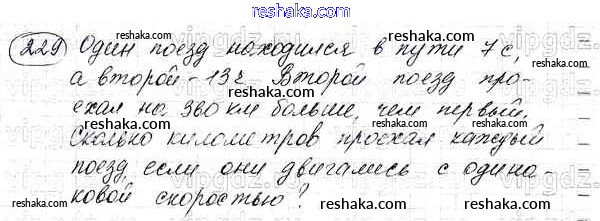 reshaka.com
229 Один поезд находился в пути 7 с,
а второй - 13 г. Второй поезд про-
ехал на 360 км больше, чем первый.
Сколько километров проехал каждый
поезд, если они двигались с одина-
ковой скоростью?
reshaka.com